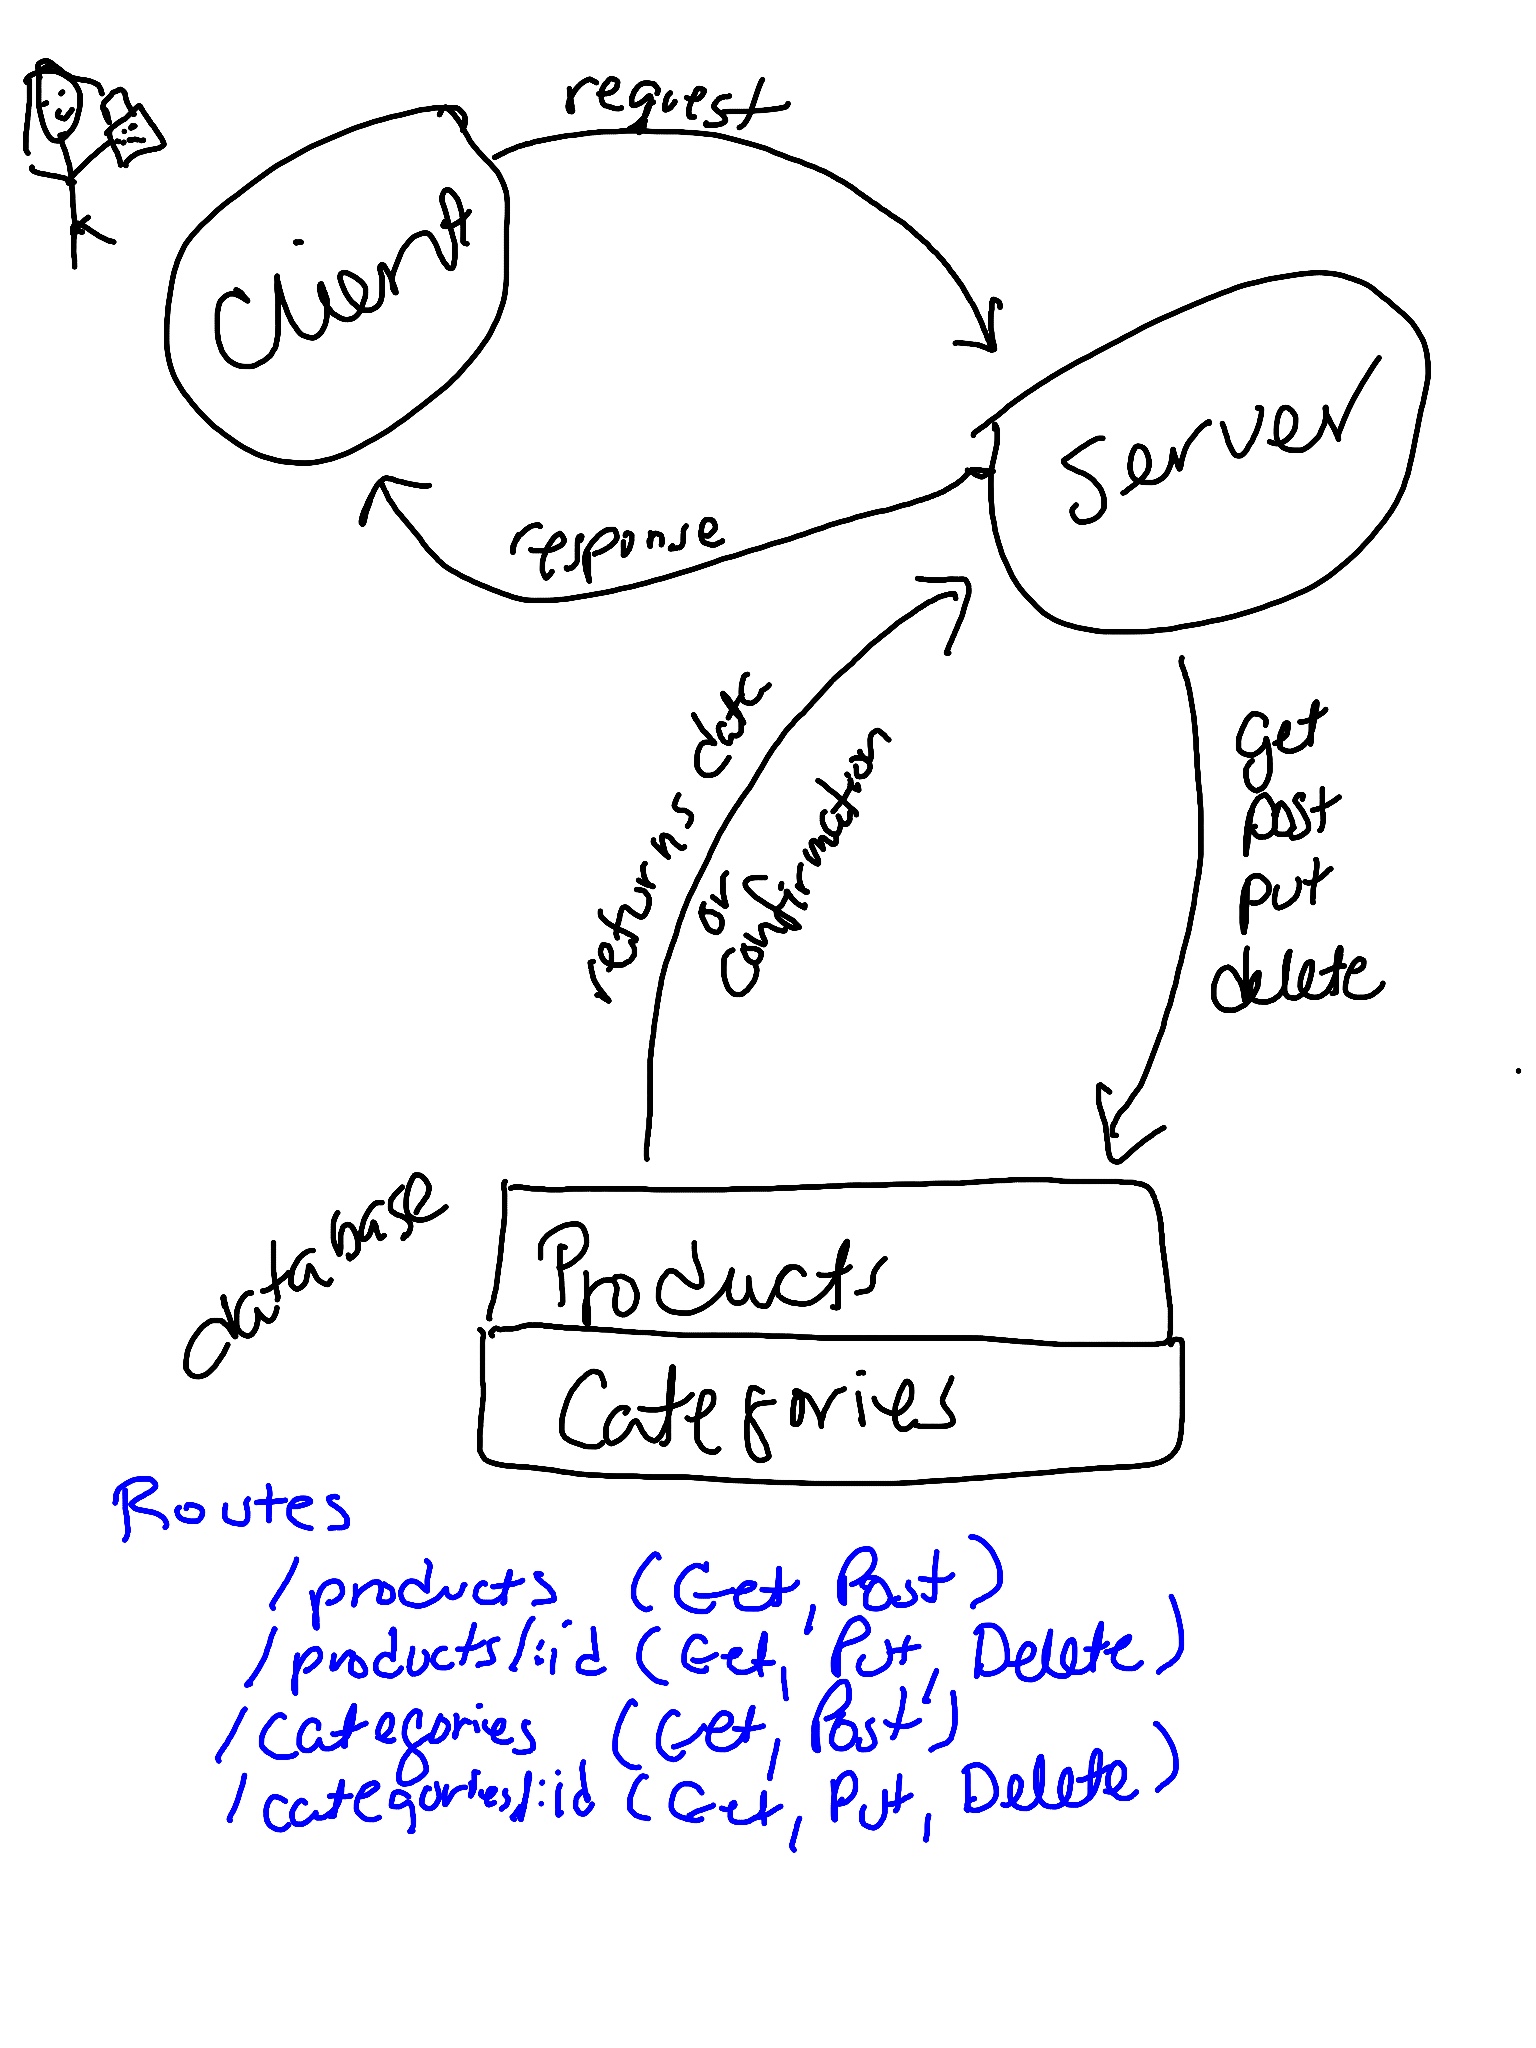 request
Client
Server
response
returns data
or
confirmation
get
post
put
delete
database
Products
Categories
Routes
/products (Get, Post)
/products/:id (Get, Put, Delete)
/categories (Get, Post)
/categories/:id (Get, Put, Delete)